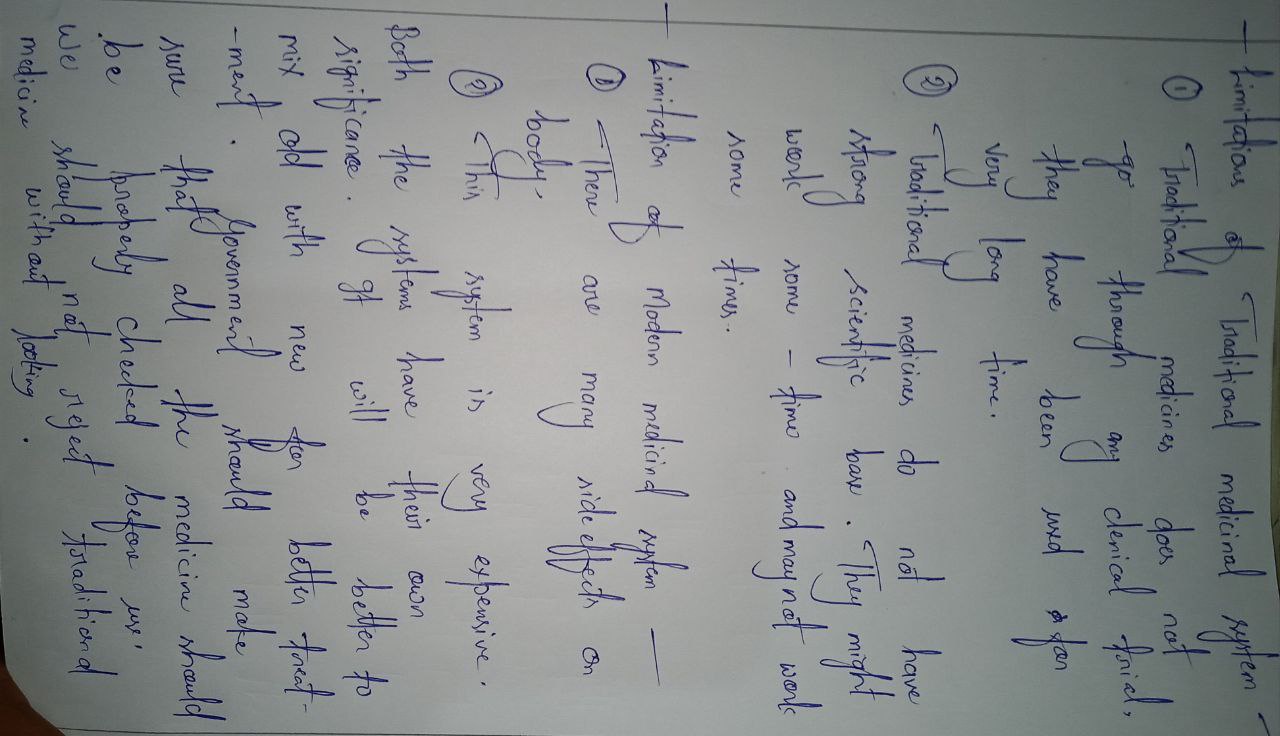 — Limitations of Traditional medicinal system —
① Traditional medicines does not
go through any clenical trial,
they have been used for
very long time.
② Traditional medicines do not have
strong scientific base. They might
work some - time and may not work
some times.
— Limitation of Modern medicinal system —
① There are many side effects on
body.
② This system is very expensive.
Both the systems have their own
significance. It will be better to
mix old with new for better treat-
-ment. Government should make
sure that all the medicine should
be properly checked before use.
We should not reject traditional
medicine without looking.